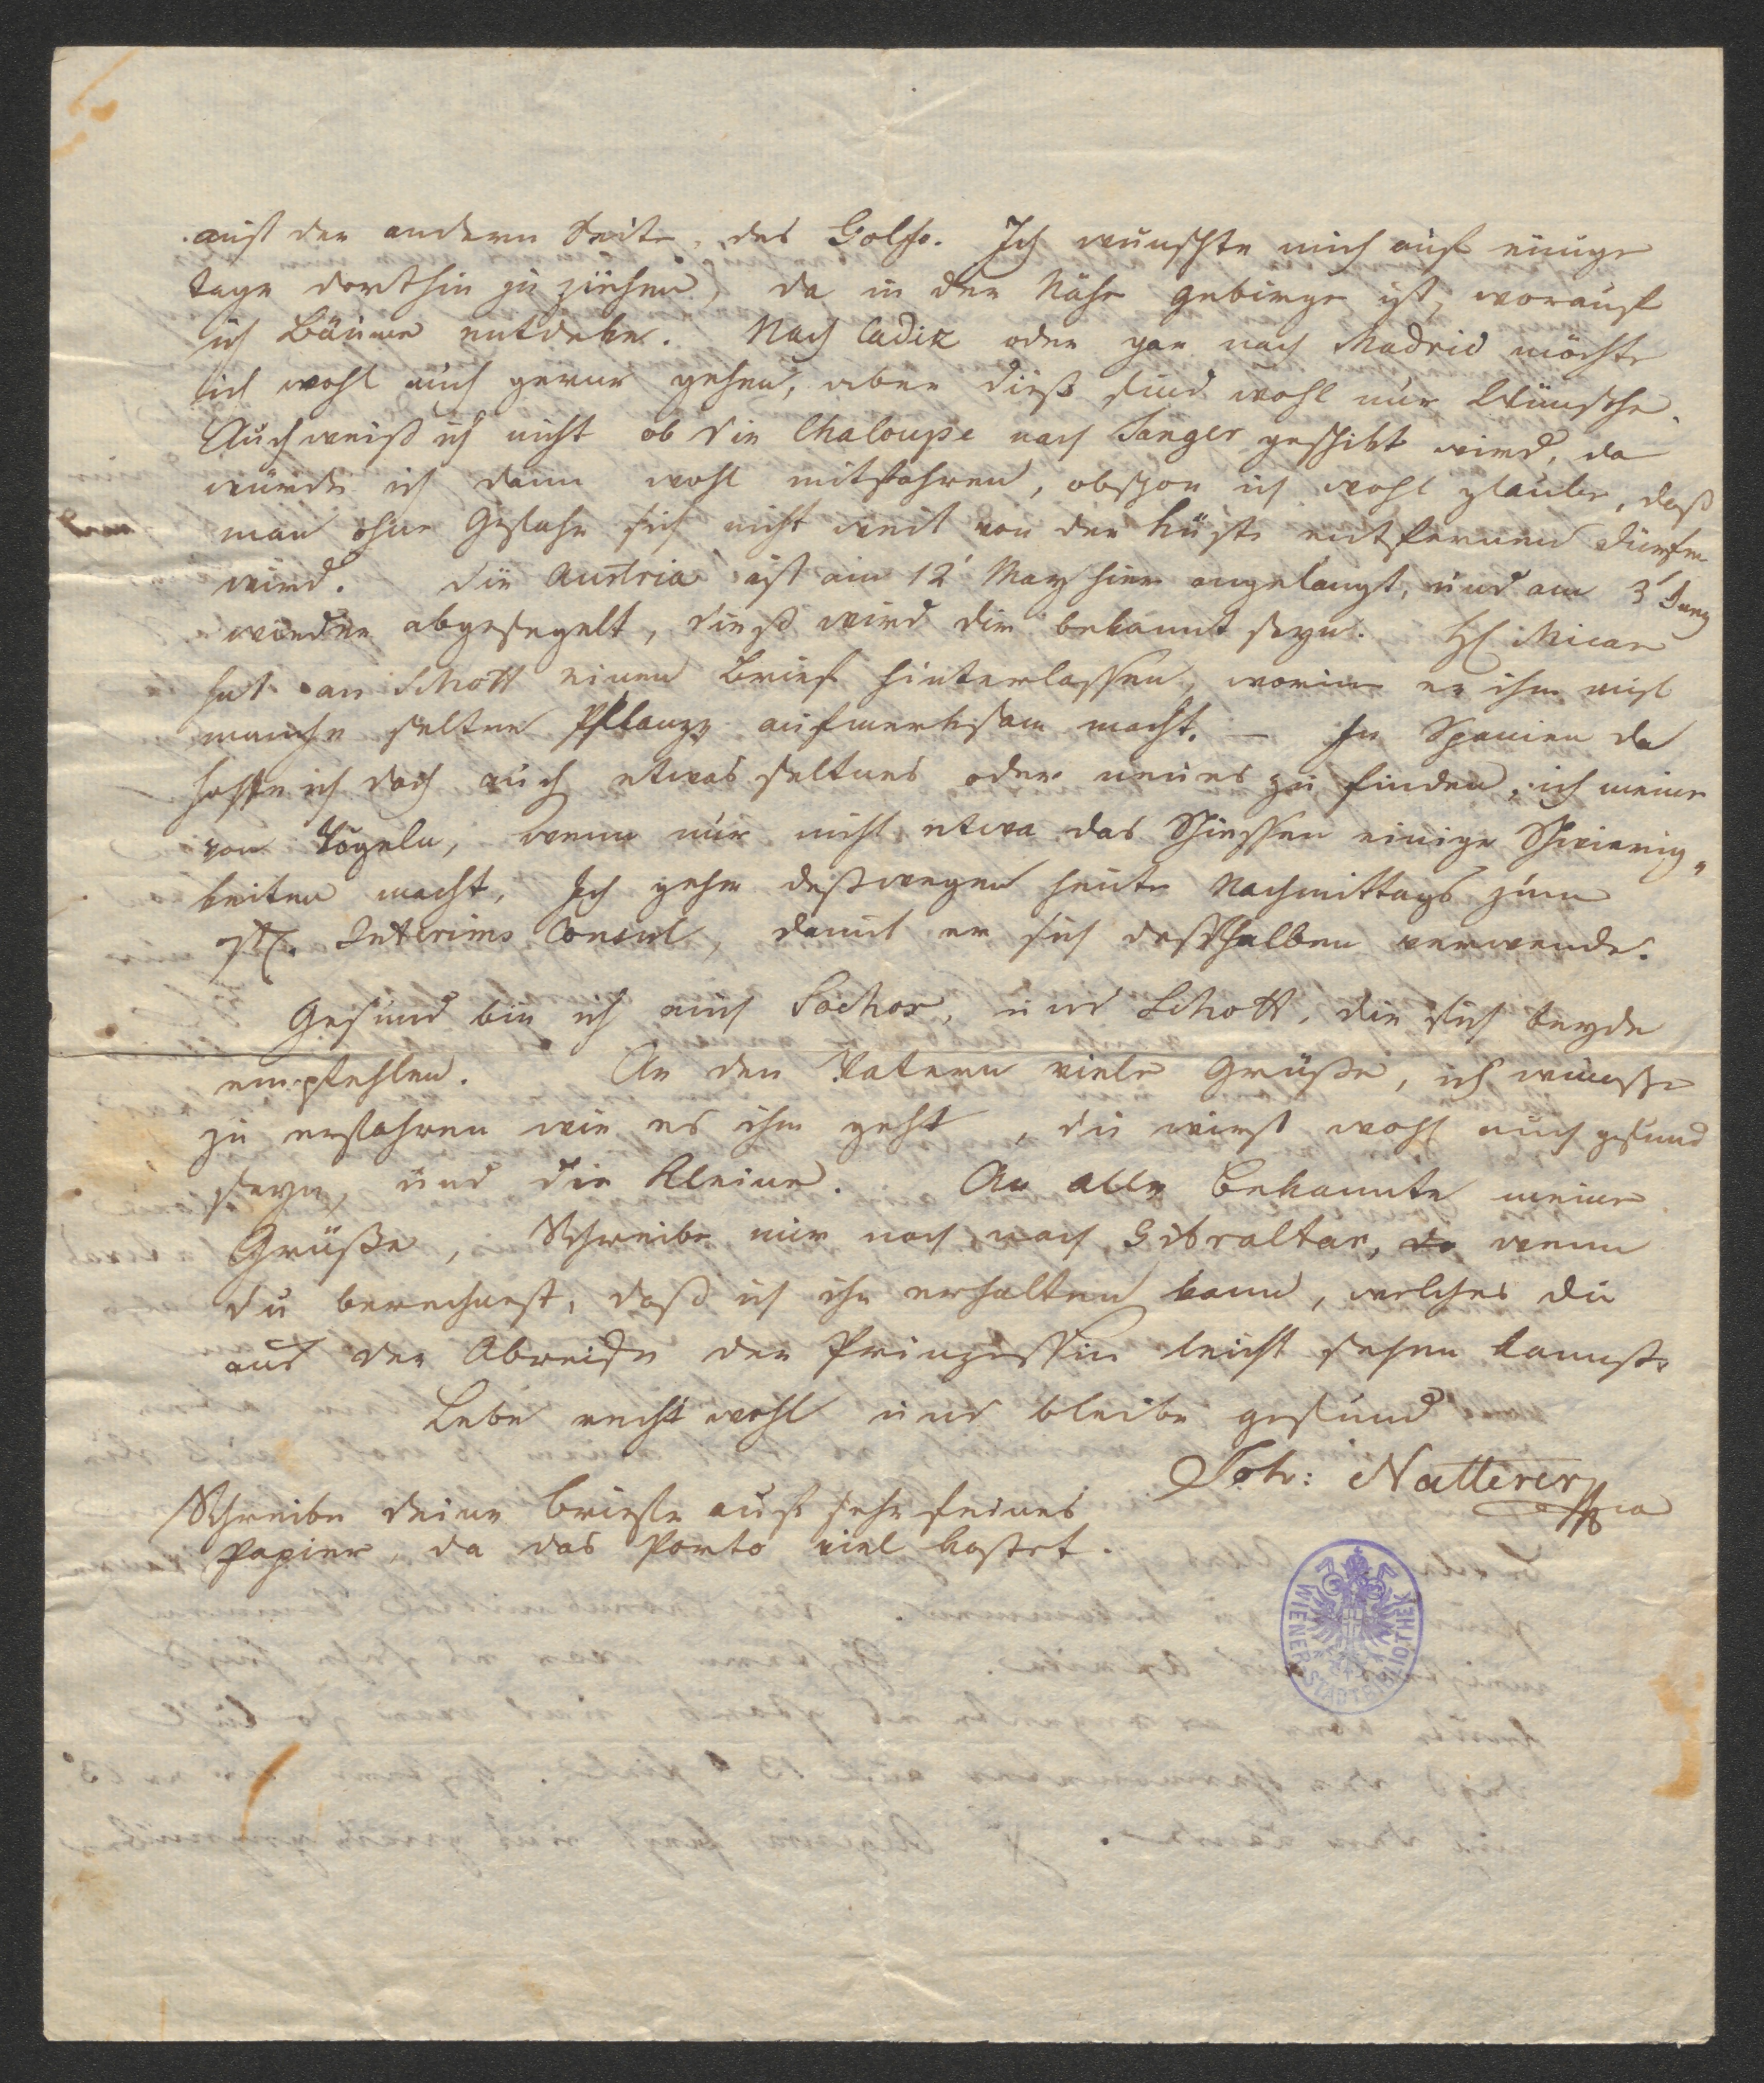 auf der andern Seite, des Golfs. Ich wünschte mich auf einige
tage dorthin zu ziehen, da in der Nähe gebirge ist, worauf
ich Bäume entdeke. Nach Cadix oder gar nach Madrid möchte
ich wohl auch gerne gehen, aber dieß sind wohl nur Wünsche.
Auch weiß ich nicht ob die Chaloupe nach Tanger geschikt wird, da
würde ich dann wohl mitfahren, obschon ich wohl glaube, daß
man ohne Gefahr sich nicht weit von der Küste entfernen dürfen
wird. Die Austria ist am 12' May hier angelangt, und am 3' Juny
wieder abgesegelt, dieß wird dir bekannt seyn. H Mican
hat an Schott einen Brief hinterlassen, worin er ihn auf
manche seltne Pflanze aufmerksam macht. – In Spanien da
hoffe ich doch auch etwas seltnes oder neues zu finden, ich meine
von Vögeln, wenn nur nicht etwa das Schiessen einige Schwierig„
keiten macht, Ich gehe deßwegen heute Nachmittags zum
Interims Consul, damit er sich desshalben verwende.
Gesund bin ich auch Sochor, und Schott, die sich beyde
empfehlen. An den Vatern viele Grüße, ich wünsche
zu erfahren wie es ihm geht, du wirst wohl auch gesund
seyn, und die Kleine. An alle Bekannte meine
Grüße, Schreibe mir noch nach Gibraltar, da wenn
du berechnest, daß ich ihn erhalten kann, welches du
aus der Abreise der Prinzessin leicht sehen kannst.
Lebe recht wohl und bleibe gesund
Joh: Natterer
Schreibe deine Briefe auf sehr feines
Papier, da das Porto viel kostet.
WIENER STADTBIBLIOTHEK